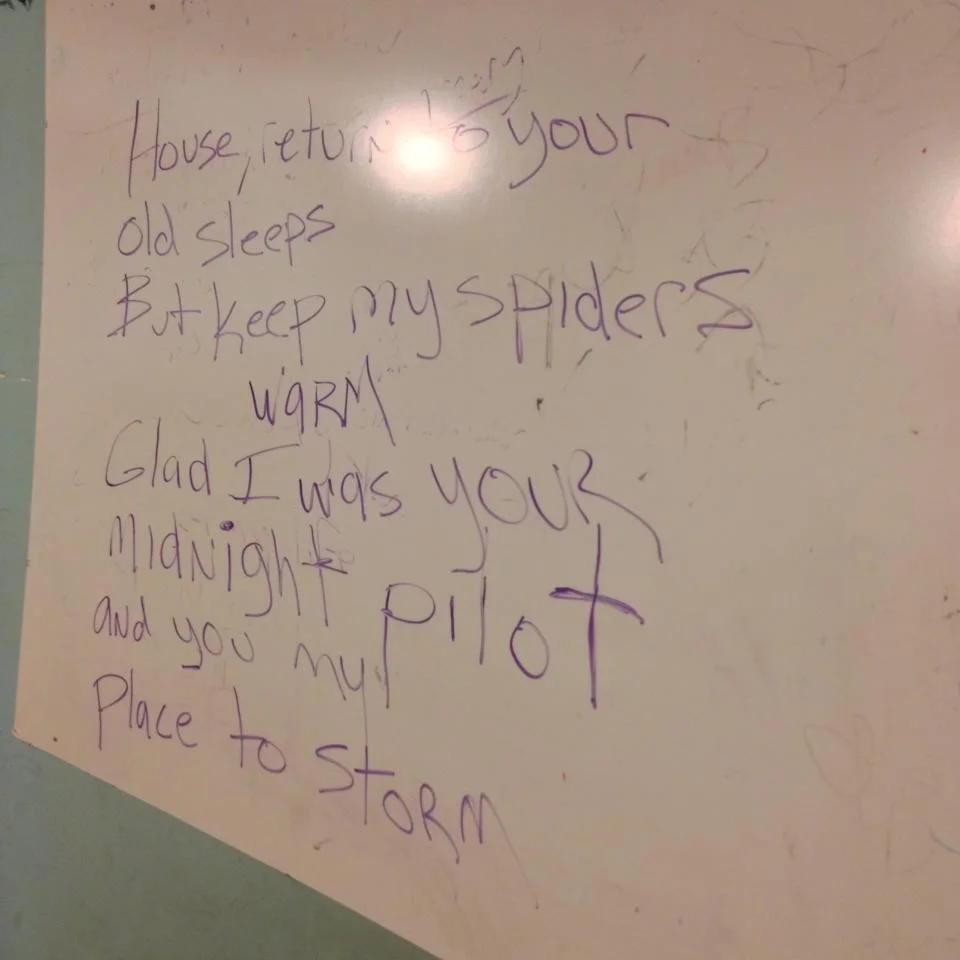 House, return to your
old sleeps
But keep my spiders
warm
Glad I was your
Midnight pilot
and you my
Place to storm